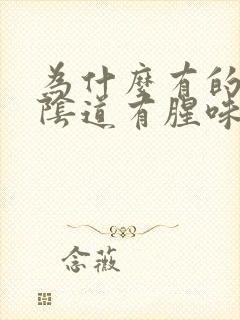 為什麼有的
陰道有腥味
念薇